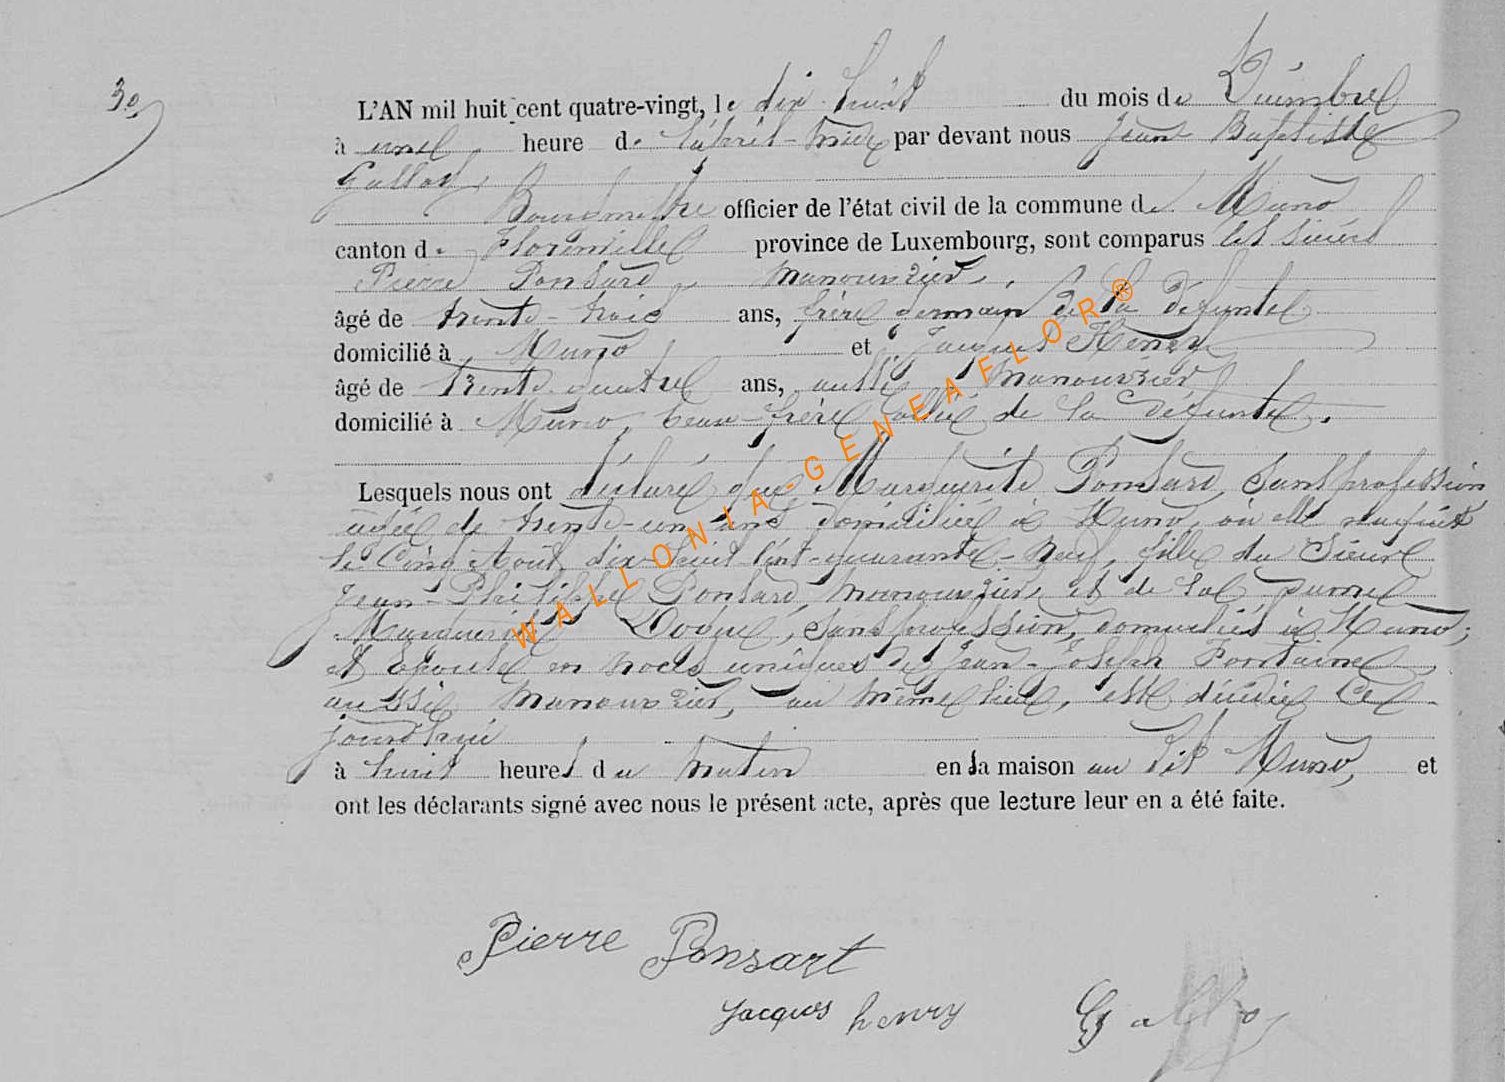 30
L'AN mil huit cent quatre-vingt, le dix huit du mois de Décembre
à une heure de l'après-midi par devant nous Jean Baptiste
Galloy,
Bourgmestre officier de l'état civil de la commune de Muno
canton de Florenville province de Luxembourg, sont comparus les sieurs
Pierre Ponsard manouvrier,
âgé de trente-trois ans, frère germain de la défunte
domicilié à Muno et Jacques Henry
âgé de trente-quatre ans, aussi manouvrier
domicilié à Muno, beau-frère allié de la défunte.
Lesquels nous ont déclaré que Marguerite Ponsard, sans profession
agée de trente-un ans domiciliée à Muno, où elle naquit
le Cinq Août dix-huit cent-quarante-neuf, fille du Sieur
Jean-Philippe Ponsard, manouvrier, et de la dame
Marguerite sans profession, domiciliés à Muno;
et Epouse en noces uniques de Jean-Joseph Pontaine
aussi manouvrier, au même lieu, est décédée ce
jourd'hui
à huit heures du matin en sa maison au dit Muno, et
ont les déclarants signé avec nous le présent acte, après que lecture leur en a été faite.
WALLONIA-GENEAFLOR®
Pierre Ponsart
Jacques henry
Galloy